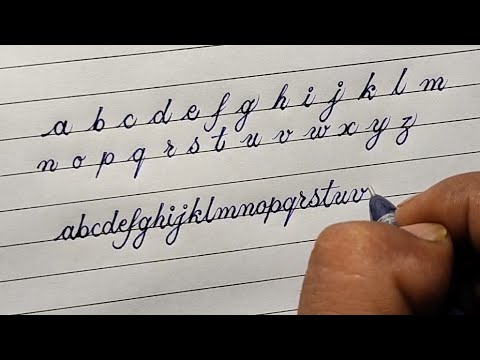 a b c d e f g h i j k l m
n o p q r s t u v w x y z
abcdefghijklmnopqrstuv